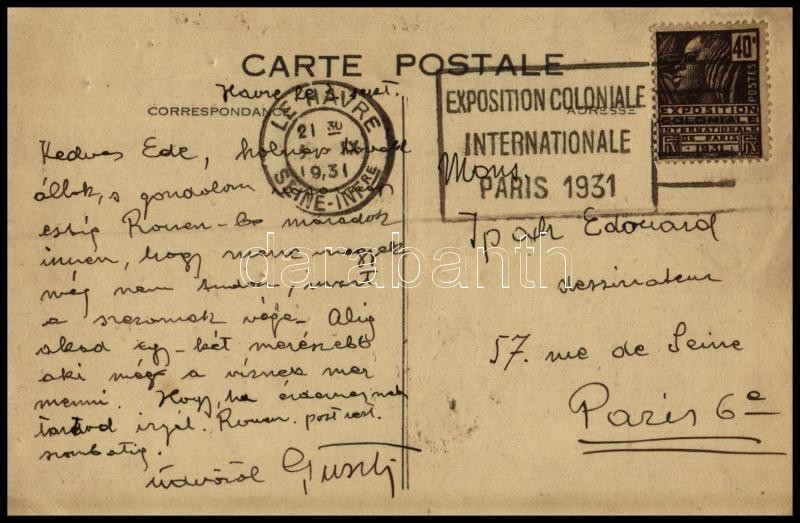 CARTE POSTALE
Havre le
CORRESPONDANCE
ADRESSE
LE HAVRE
21 30
IX
19.31
SEINE-INFRE
EXPOSITION COLONIALE
INTERNATIONALE
PARIS 1931
40c
POSTES
EXPOSITION
COLONIALE
INTERNATIONALE
DE PARIS
1931
Kedves Ede, holnap
állok, s gondolom
estig Rouen-ba maradok
innen, hogy merre megyek
még nem tudom, mert
a szezonnak vége. Alig
akad egy-két merészebb
aki még a víznek mer
menni. Hogy, ha érdemesnek
tartod írjál. Rouen. post rest.
szombatig.
üdvözöl Guszti
Mons.
Edouard
dessinateur
57. rue de Seine
Paris 6e
darabanth